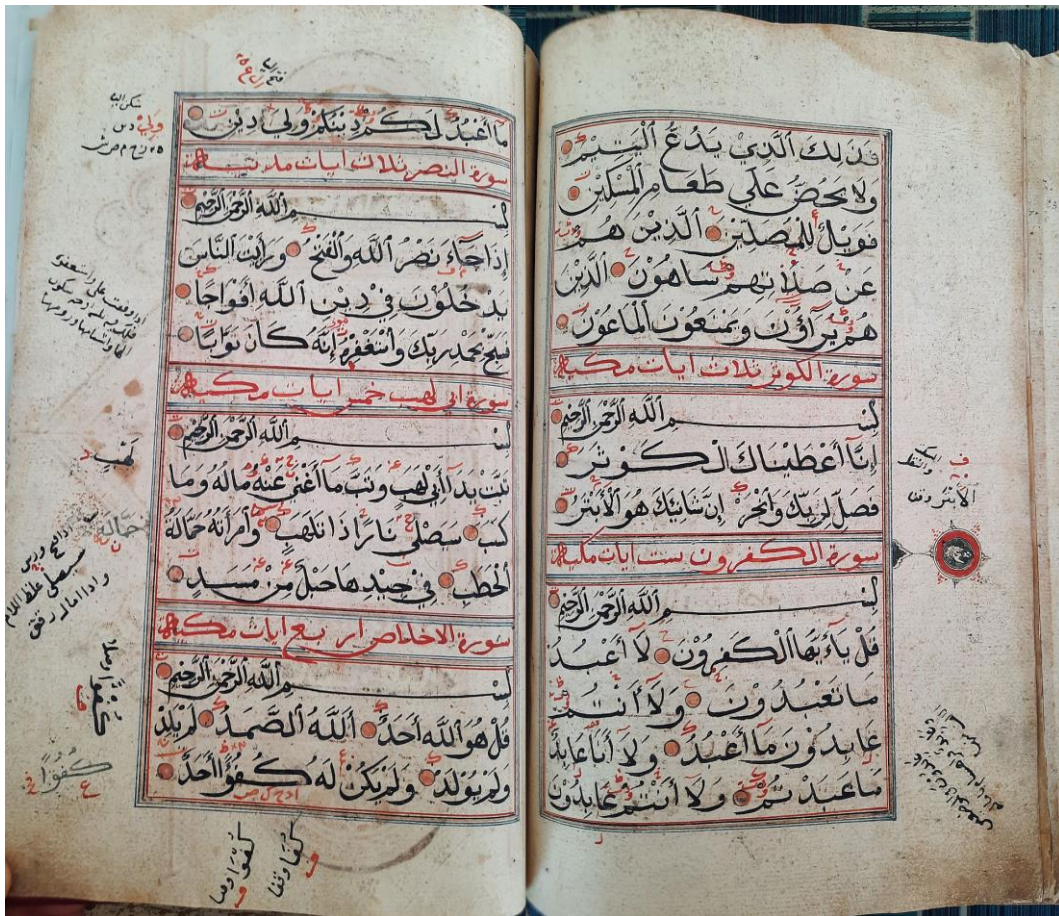 فَذَٰلِكَ ٱلَّذِي يَدُعُّ ٱلْيَتِيْمَ
وَلَا يَحُضُّ عَلَي طَعَامِ ٱلْمِسْكِيْنِ
فَوَيْلٌ لِّلْمُصَلِّيْنَ ٱلَّذِيْنَ هُمْ
عَنْ صَلَاتِهِمْ سَاهُوْنَ ٱلَّذِيْنَ
هُمْ يُرَآؤُنَ وَيَمْنَعُوْنَ ٱلْمَاعُوْنَ
سورة الكوثر ثلاث ايات مكية
بِسْمِ ٱللَّهِ ٱلرَّحْمَٰنِ ٱلرَّحِيْمِ
إِنَّآ أَعْطَيْنَاكَ ٱلْكَوْثَرَ
فَصَلِّ لِرَبِّكَ وَٱنْحَرْ إِنَّ شَانِئَكَ هُوَ ٱلْأَبْتَرُ
سورة الكفرون ست ايات مكية
بِسْمِ ٱللَّهِ ٱلرَّحْمَٰنِ ٱلرَّحِيْمِ
قُلْ يَآءَيُّهَا ٱلْكَفِرُوْنَ لَآ أَعْبُدُ
مَا تَعْبُدُوْنَ وَلَآ أَنْتُمْ
عَابِدُوْنَ مَآ أَعْبُدُ وَلَآ أَنَا عَابِدٌ
مَا عَبَدْتُّمْ وَلَآ أَنْتُمْ عَابِدُوْنَ
الأبتر وقفا
مَآ أَعْبُدُ لَكُمْ دِيْنُكُمْ وَلِيَ دِيْنِ
سورة النصر ثلاث ايات مدنية
بِسْمِ ٱللَّهِ ٱلرَّحْمَٰنِ ٱلرَّحِيْمِ
إِذَا جَآءَ نَصْرُ ٱللَّهِ وَٱلْفَتْحُ وَرَأَيْتَ ٱلنَّاسَ
يَدْخُلُوْنَ فِيْ دِيْنِ ٱللَّهِ أَفْوَاجًا
فَسَبِّحْ بِحَمْدِ رَبِّكَ وَٱسْتَغْفِرْهُ إِنَّهُ كَانَ تَوَّابًا
سورة ابي لهب خمس ايات مكية
بِسْمِ ٱللَّهِ ٱلرَّحْمَٰنِ ٱلرَّحِيْمِ
تَبَّتْ يَدَآ أَبِيْ لَهَبٍ وَتَبَّ مَآ أَغْنَيٰ عَنْهُ مَالُهُ وَمَا
كَسَبَ سَيَصْلَيٰ نَارًا ذَاتَ لَهَبٍ وَٱمْرَأَتُهُ حَمَّالَةُ
ٱلْحَطَبِ فِيْ جِيْدِهَا حَبْلٌ مِّنْ مَسَدٍ
سورة الاخلاص اربع ايات مكية
بِسْمِ ٱللَّهِ ٱلرَّحْمَٰنِ ٱلرَّحِيْمِ
قُلْ هُوَ ٱللَّهُ أَحَدٌ ٱللَّهُ ٱلصَّمَدُ لَمْ يَلِدْ
وَلَمْ يُوْلَدْ وَلَمْ يَكُنْ لَهُ كُفُؤًا أَحَدٌ
فتح اليا
سكن اليا
ولي دين
لهب
حمالة
كفوا